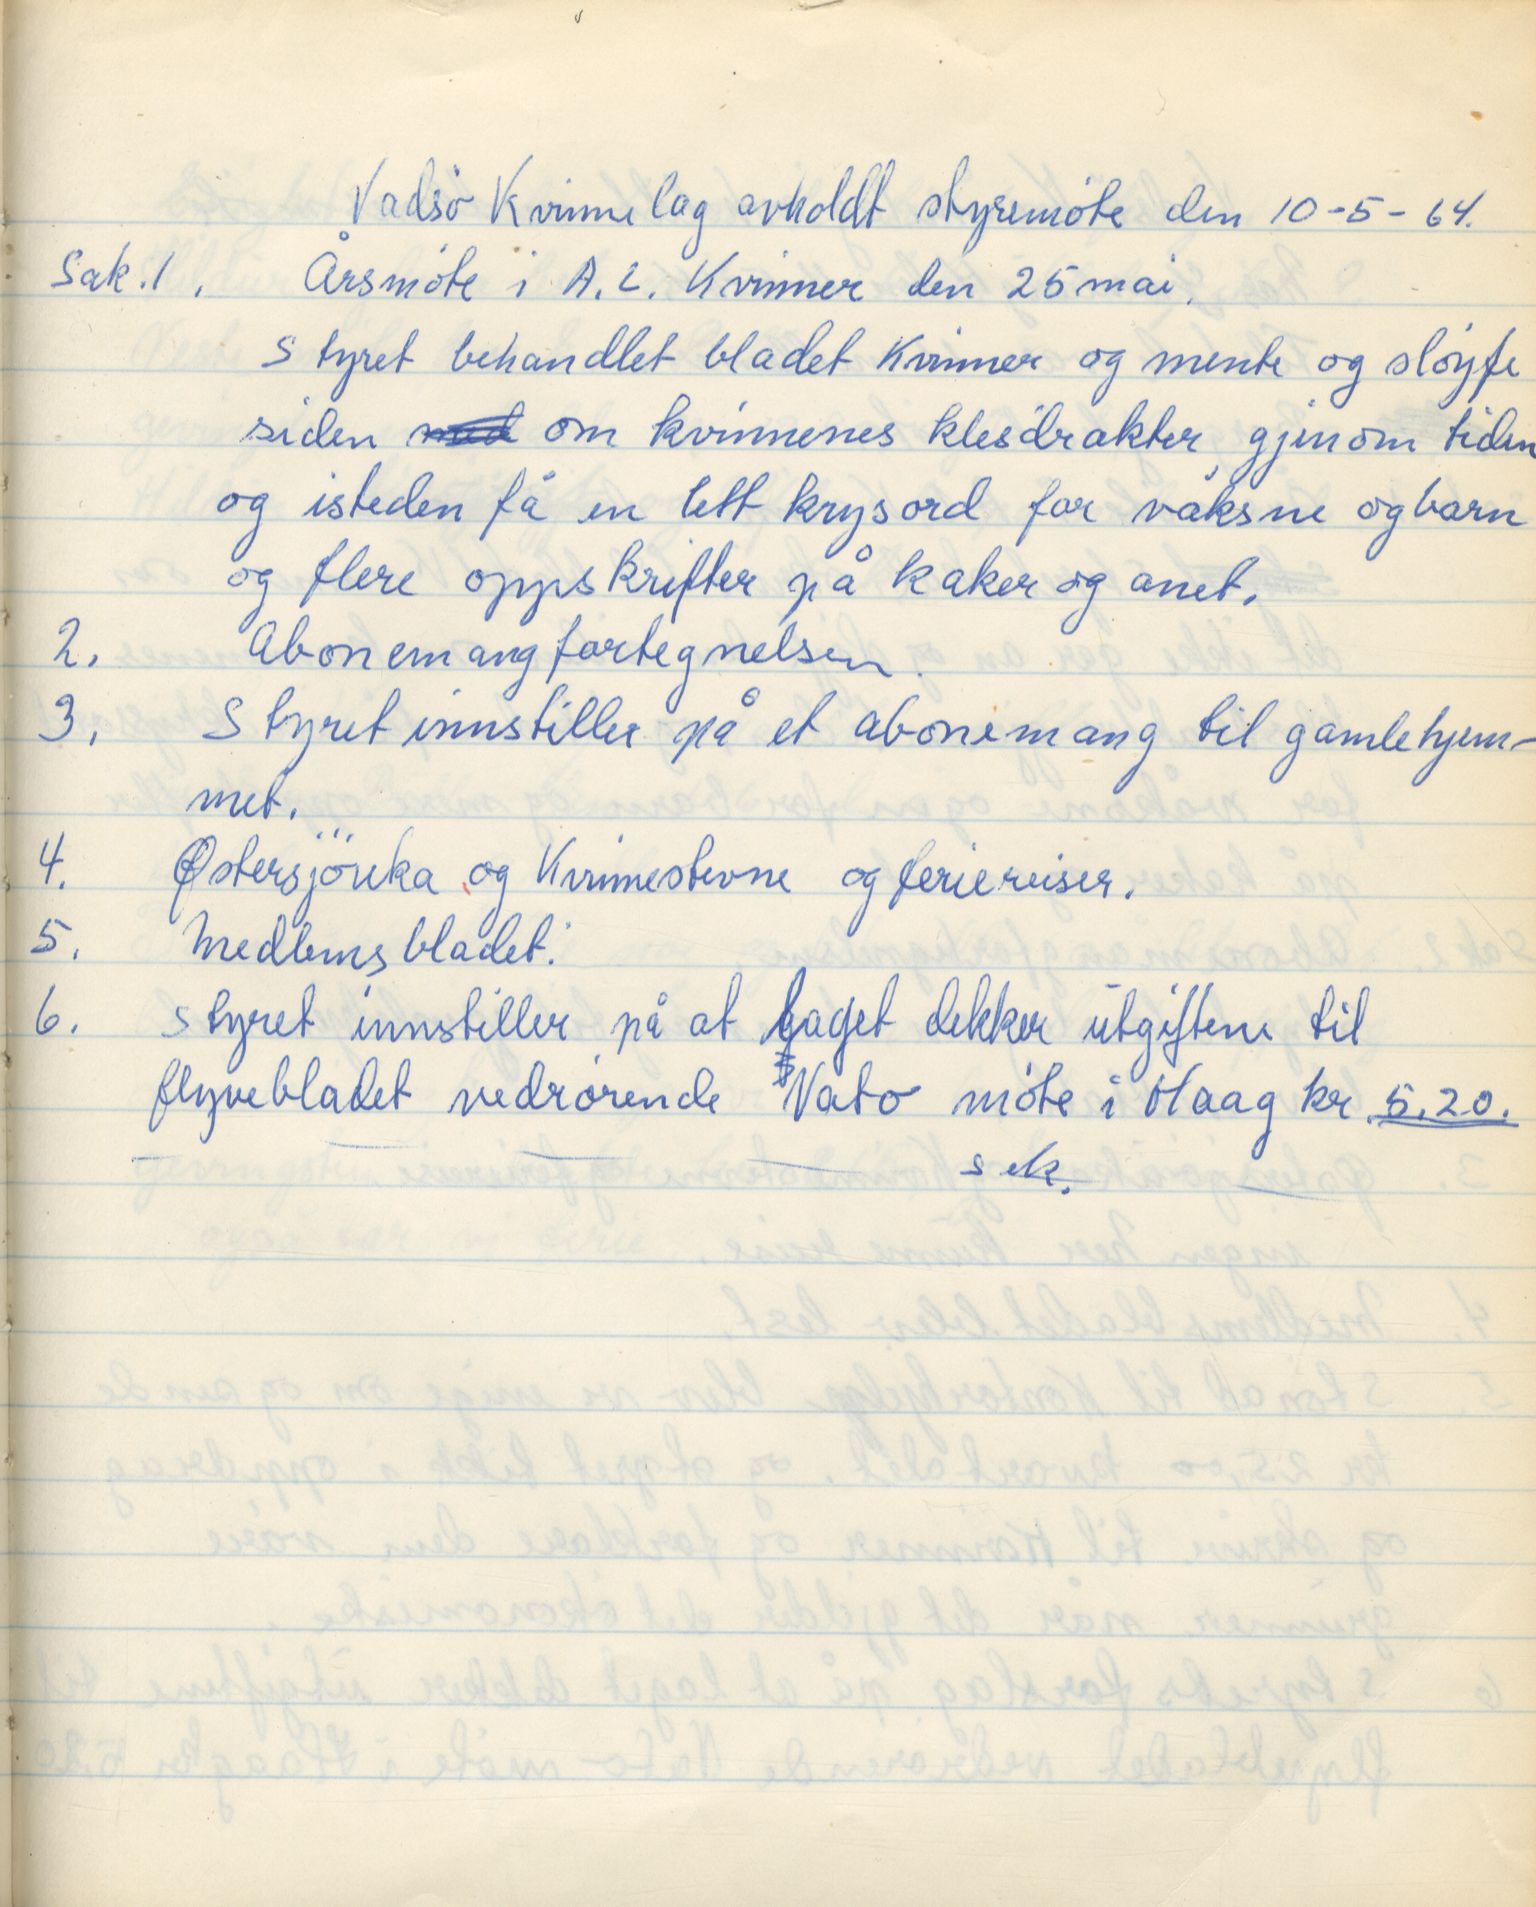 Vadsö Kvinnelag avholdt styremöte den 10-5-64.
Sak.1. Årsmöte i A.L. Kvinner den 25 mai.
Styret behandlet bladet Kvinner og mente og slöyfe
siden om kvinnenes klesdrakter gjenom tiden
og isteden få en lett krysord for våksne og barn
og flere oppskrifter på kaker og anet.
2. Abonemangfortegnelsen.
3. Styret innstiller på et abonemang til gamlehjem-
met.
4. Østersjöuka og Kvinnestevne og feriereiser.
5. Medlemsbladet.
6. Styret innstiller på at laget dekker utgiftene til
flyvebladet vedrörende Nato möte i Haag kr 5.20.
sek.